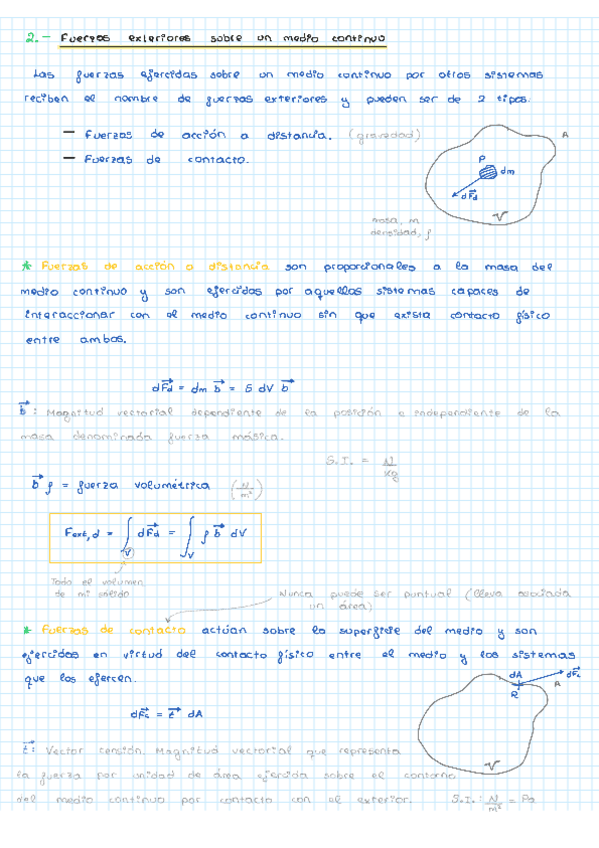 2.- Fuerzas exteriores sobre un medio continuo
Las fuerzas ejercidas sobre un medio continuo por otros sistemas
reciben el nombre de fuerzas exteriores y pueden ser de 2 tipos.
— Fuerzas de acción a distancia. (gravedad)
— Fuerzas de contacto.
A
P
dm
dF⃗d
V
masa, m
densidad, ρ
* Fuerzas de acción a distancia son proporcionales a la masa del
medio continuo y son ejercidas por aquellos sistemas capaces de
interaccionar con el medio continuo sin que exista contacto físico
entre ambos.
dF⃗d = dm b⃗ = δ dV b⃗
b⃗ : Magnitud vectorial dependiente de la posición e independiente de la
masa denominada fuerza másica.
S.I. = N/kg
b⃗ ρ = fuerza volumétrica (N/m³)
Fext,d = ∫V dF⃗d = ∫V ρ b⃗ dV
Todo el volumen
de mi sólido
Nunca puede ser puntual (lleva asociada
un área)
* Fuerzas de contacto actúan sobre la superficie del medio y son
ejercidas en virtud del contacto físico entre el medio y los sistemas
que los ejercen.
dA
dF⃗c
A
P
V
dF⃗c = t⃗ dA
t⃗ : Vector tensión. Magnitud vectorial que representa
la fuerza por unidad de área ejercida sobre el contorno
del medio continuo por contacto con el exterior. S.I.: N/m² = Pa